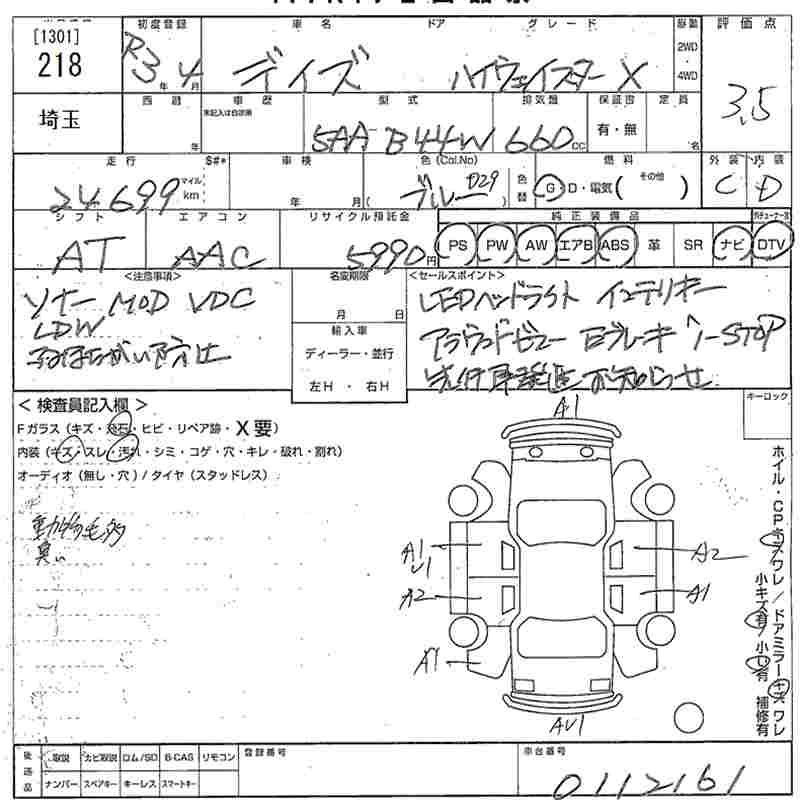 [1301]
218
埼玉
初度登録
R3年 4月
車名
デイズ
ドア
グレード
ハイウェイスター X
駆動
2WD
・
4WD
評価点
3.5
西暦
年
車歴
未記入は自家用
型式
5AA B44W
排気量
660cc
保証書
有・無
定員
名
走行
24699
マイル
km
S#*
車検
年 月(
色(Col.No)
ブルー D29 )
色替
燃料
G・D・電気( その他 )
外装
C
内装
D
シフト
AT
エアコン
AAC
リサイクル預託金
5990円
純正装備品
PS PW AW エアB ABS 革 SR ナビ DTV
<注意事項>
ソナー MOD VDC
LDW
ふみまちがい防止
名変期限
月 日
輸入車
ディーラー・並行
左H ・ 右H
<セールスポイント>
LEDヘッドライト インテリキー
アラウンドビュー Eブレーキ I-STOP
先行車発進お知らせ
< 検査員記入欄 >
Fガラス (キズ・飛石・ヒビ・リペア跡・X要)
内装 (キズ・スレ・汚れ・シミ・コゲ・穴・キレ・破れ・割れ)
オーディオ (無し・穴) / タイヤ (スタッドレス)
動物毛多
臭い
キーロック
A1
A1
U1
A2
A1
A2
A1
AU1
ホイル・CPキズワレ / ドアミラーキズワレ
小キズ有 / 小U有 補修有
後送品
取説 ナビ取説 ロム/SD B-CAS リモコン
ナンバー スペアキー キーレス スマートキー
登録番号
車台番号
0112161